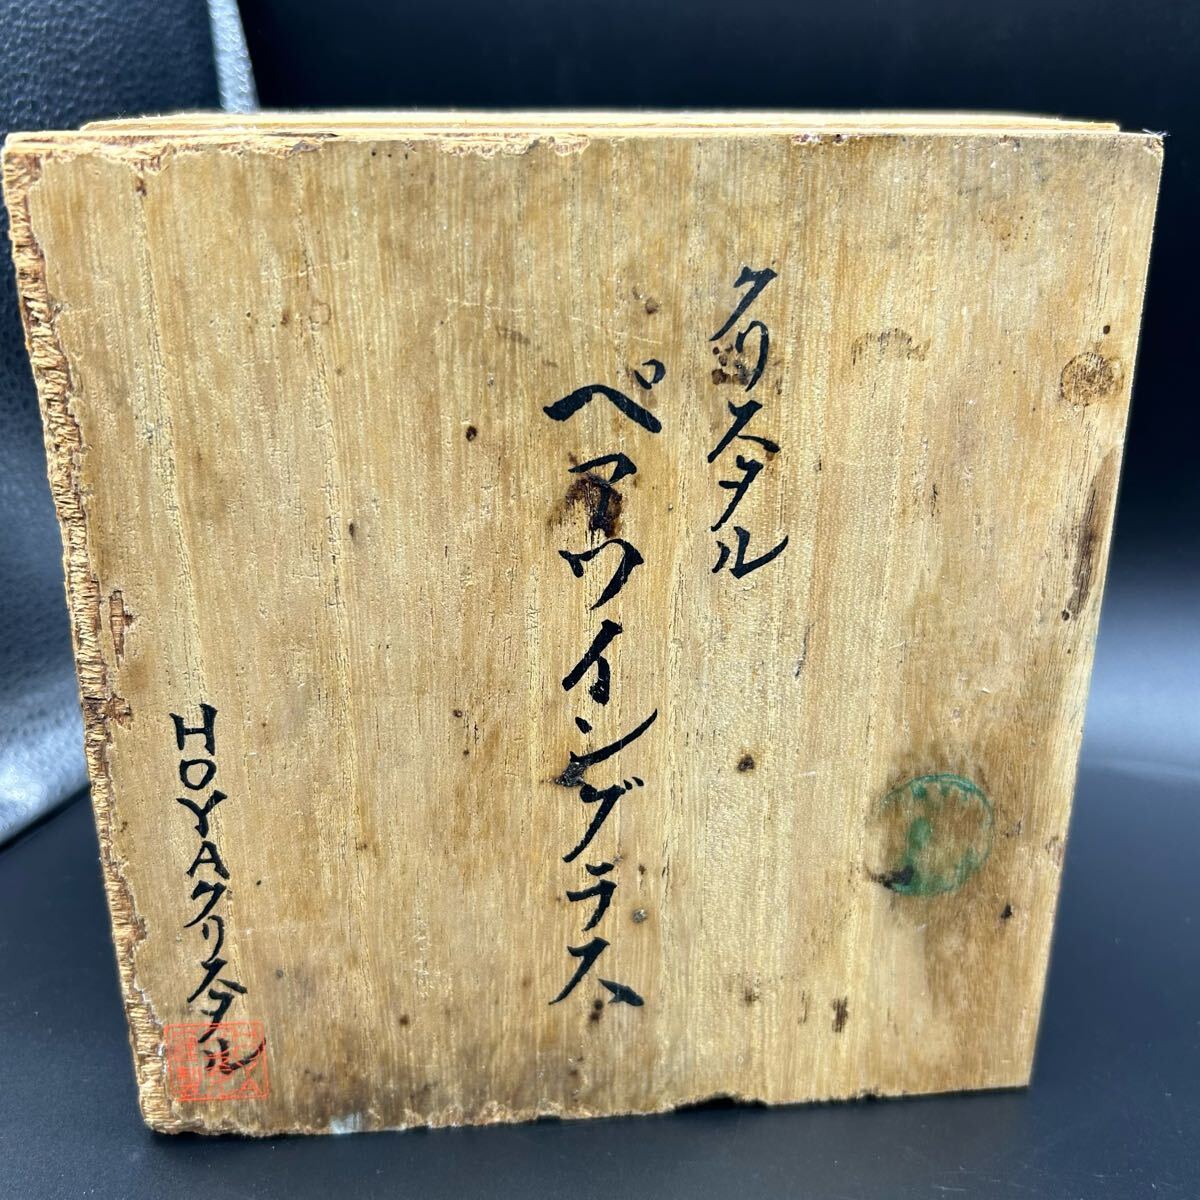 クリスタル
ペアワイングラス
HOYAクリスタル